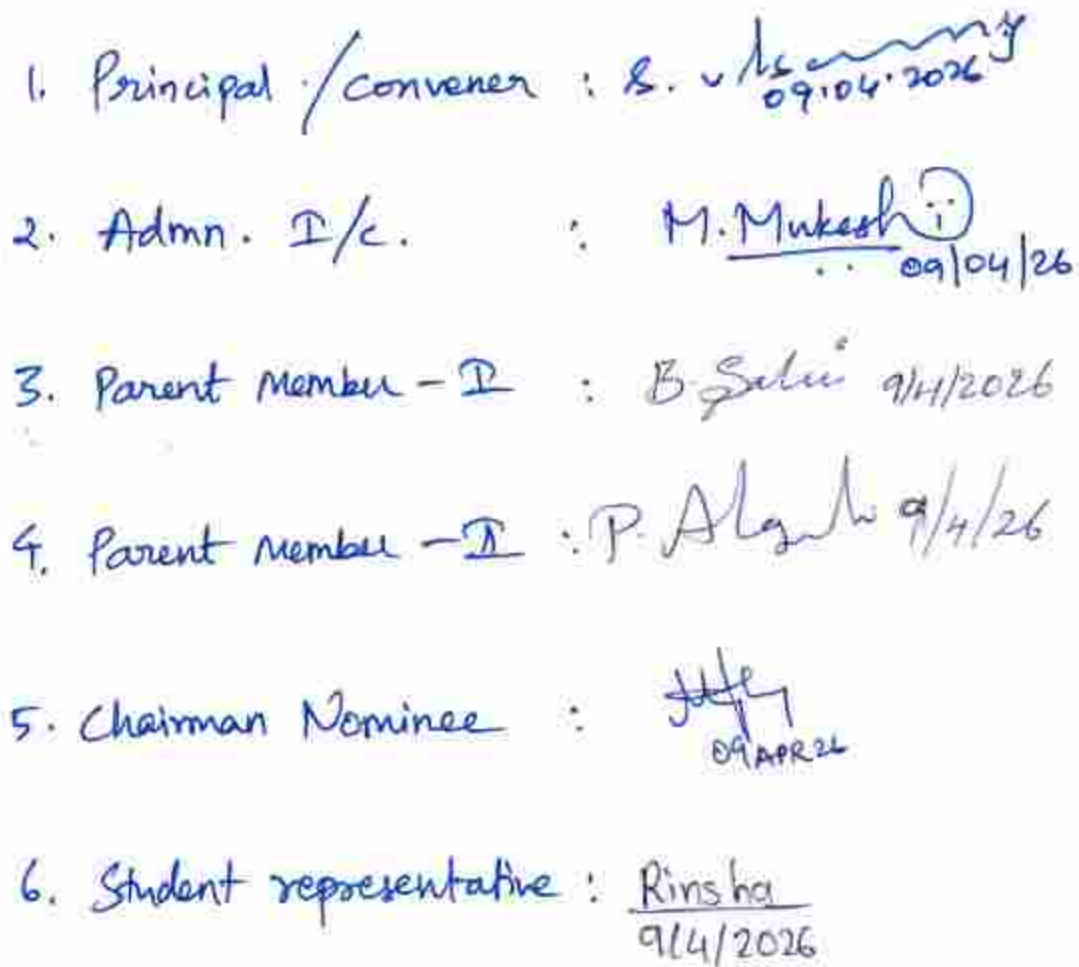 1. Principal /convener : S.
09.04.2026
2. Admn. I/c. : M. Mukesh
09/04/26
3. Parent Member - I : B. 9/4/2026
4. Parent Member - II : P. 9/4/26
5. Chairman Nominee :
09 APR 26
6. Student representative : Rinsha
9/4/2026